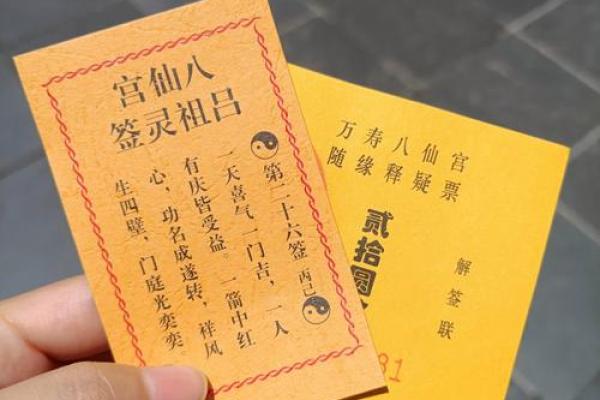 八仙宫
吕祖灵签
第二十六签 丙己
一天喜气一门吉，一人
有庆皆受益。一箭中红
心，功名成遂转，祥风
生四壁，门庭光奕奕。
万寿八仙宫
随缘释疑票
贰拾圆
解签联